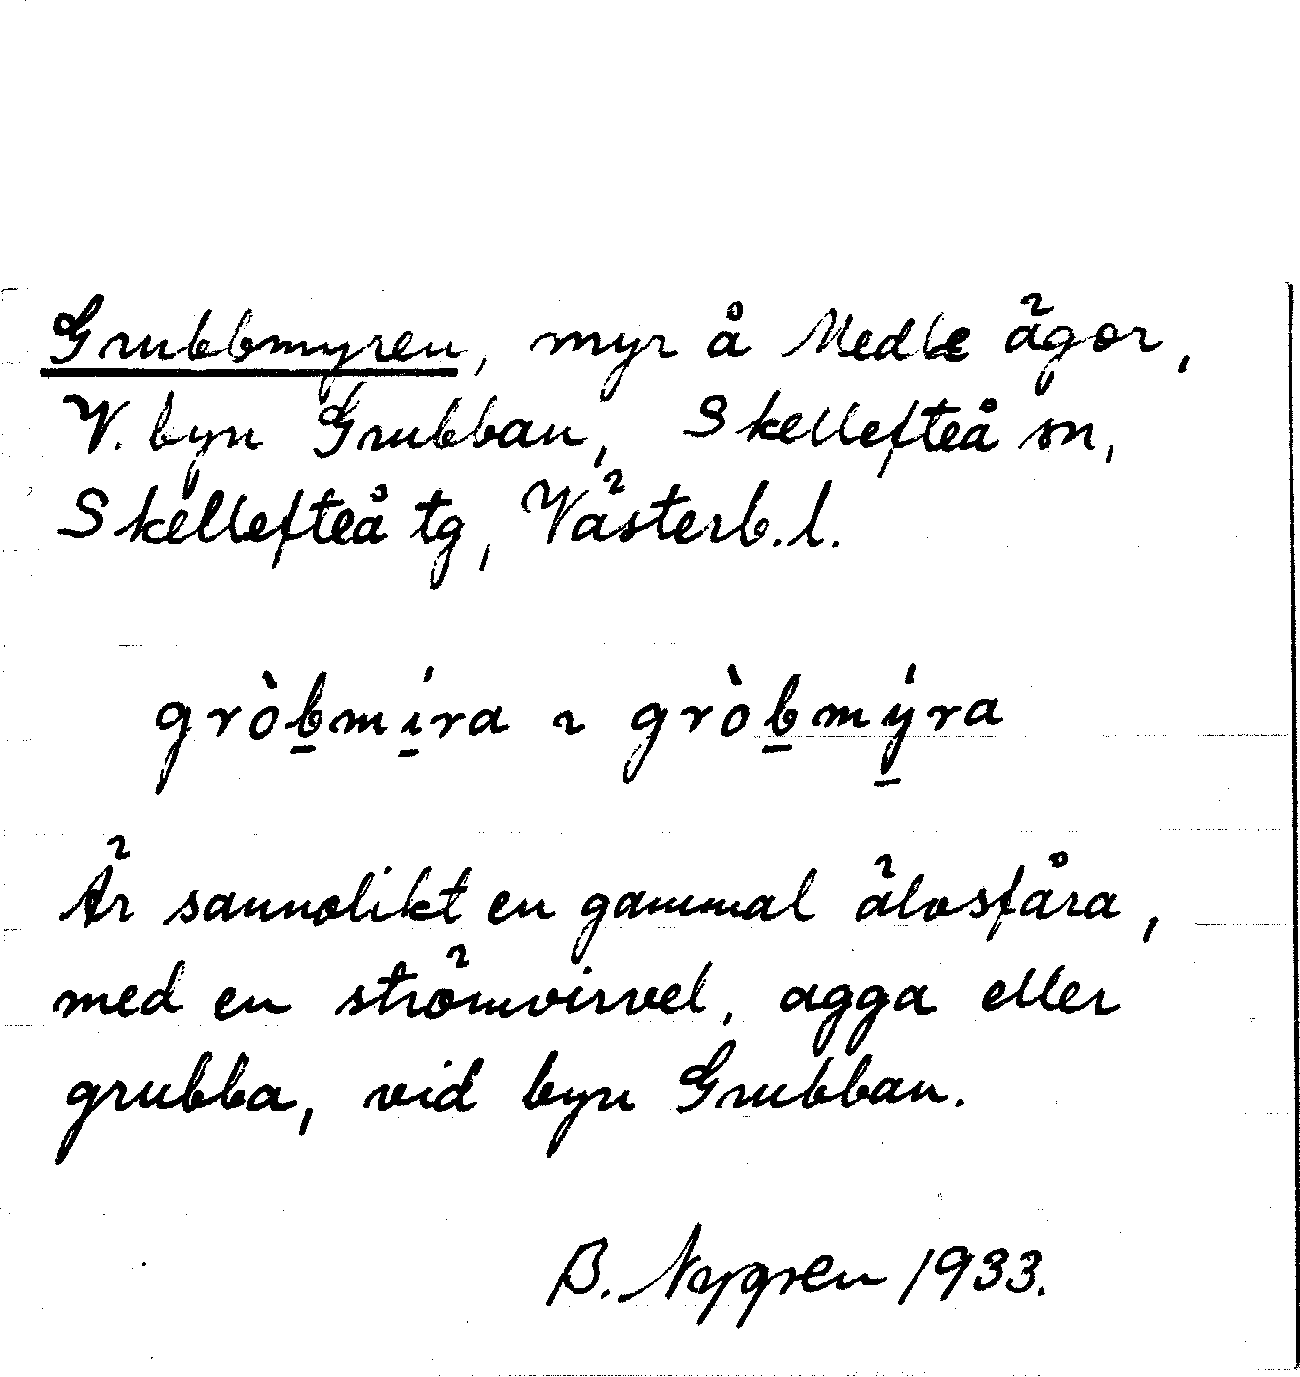 Grubbmyren, myr å Medle ägor,
V. byn Grubban, Skellefteå sn,
Skellefteå tg, Västerb. l.
gròb̲mí̲ra ~ gròb̲mý̲ra
Är sannolikt en gammal älvsfåra,
med en strömvirvel, agga eller
grubba, vid byn Grubban.
B. Nygren 1933.